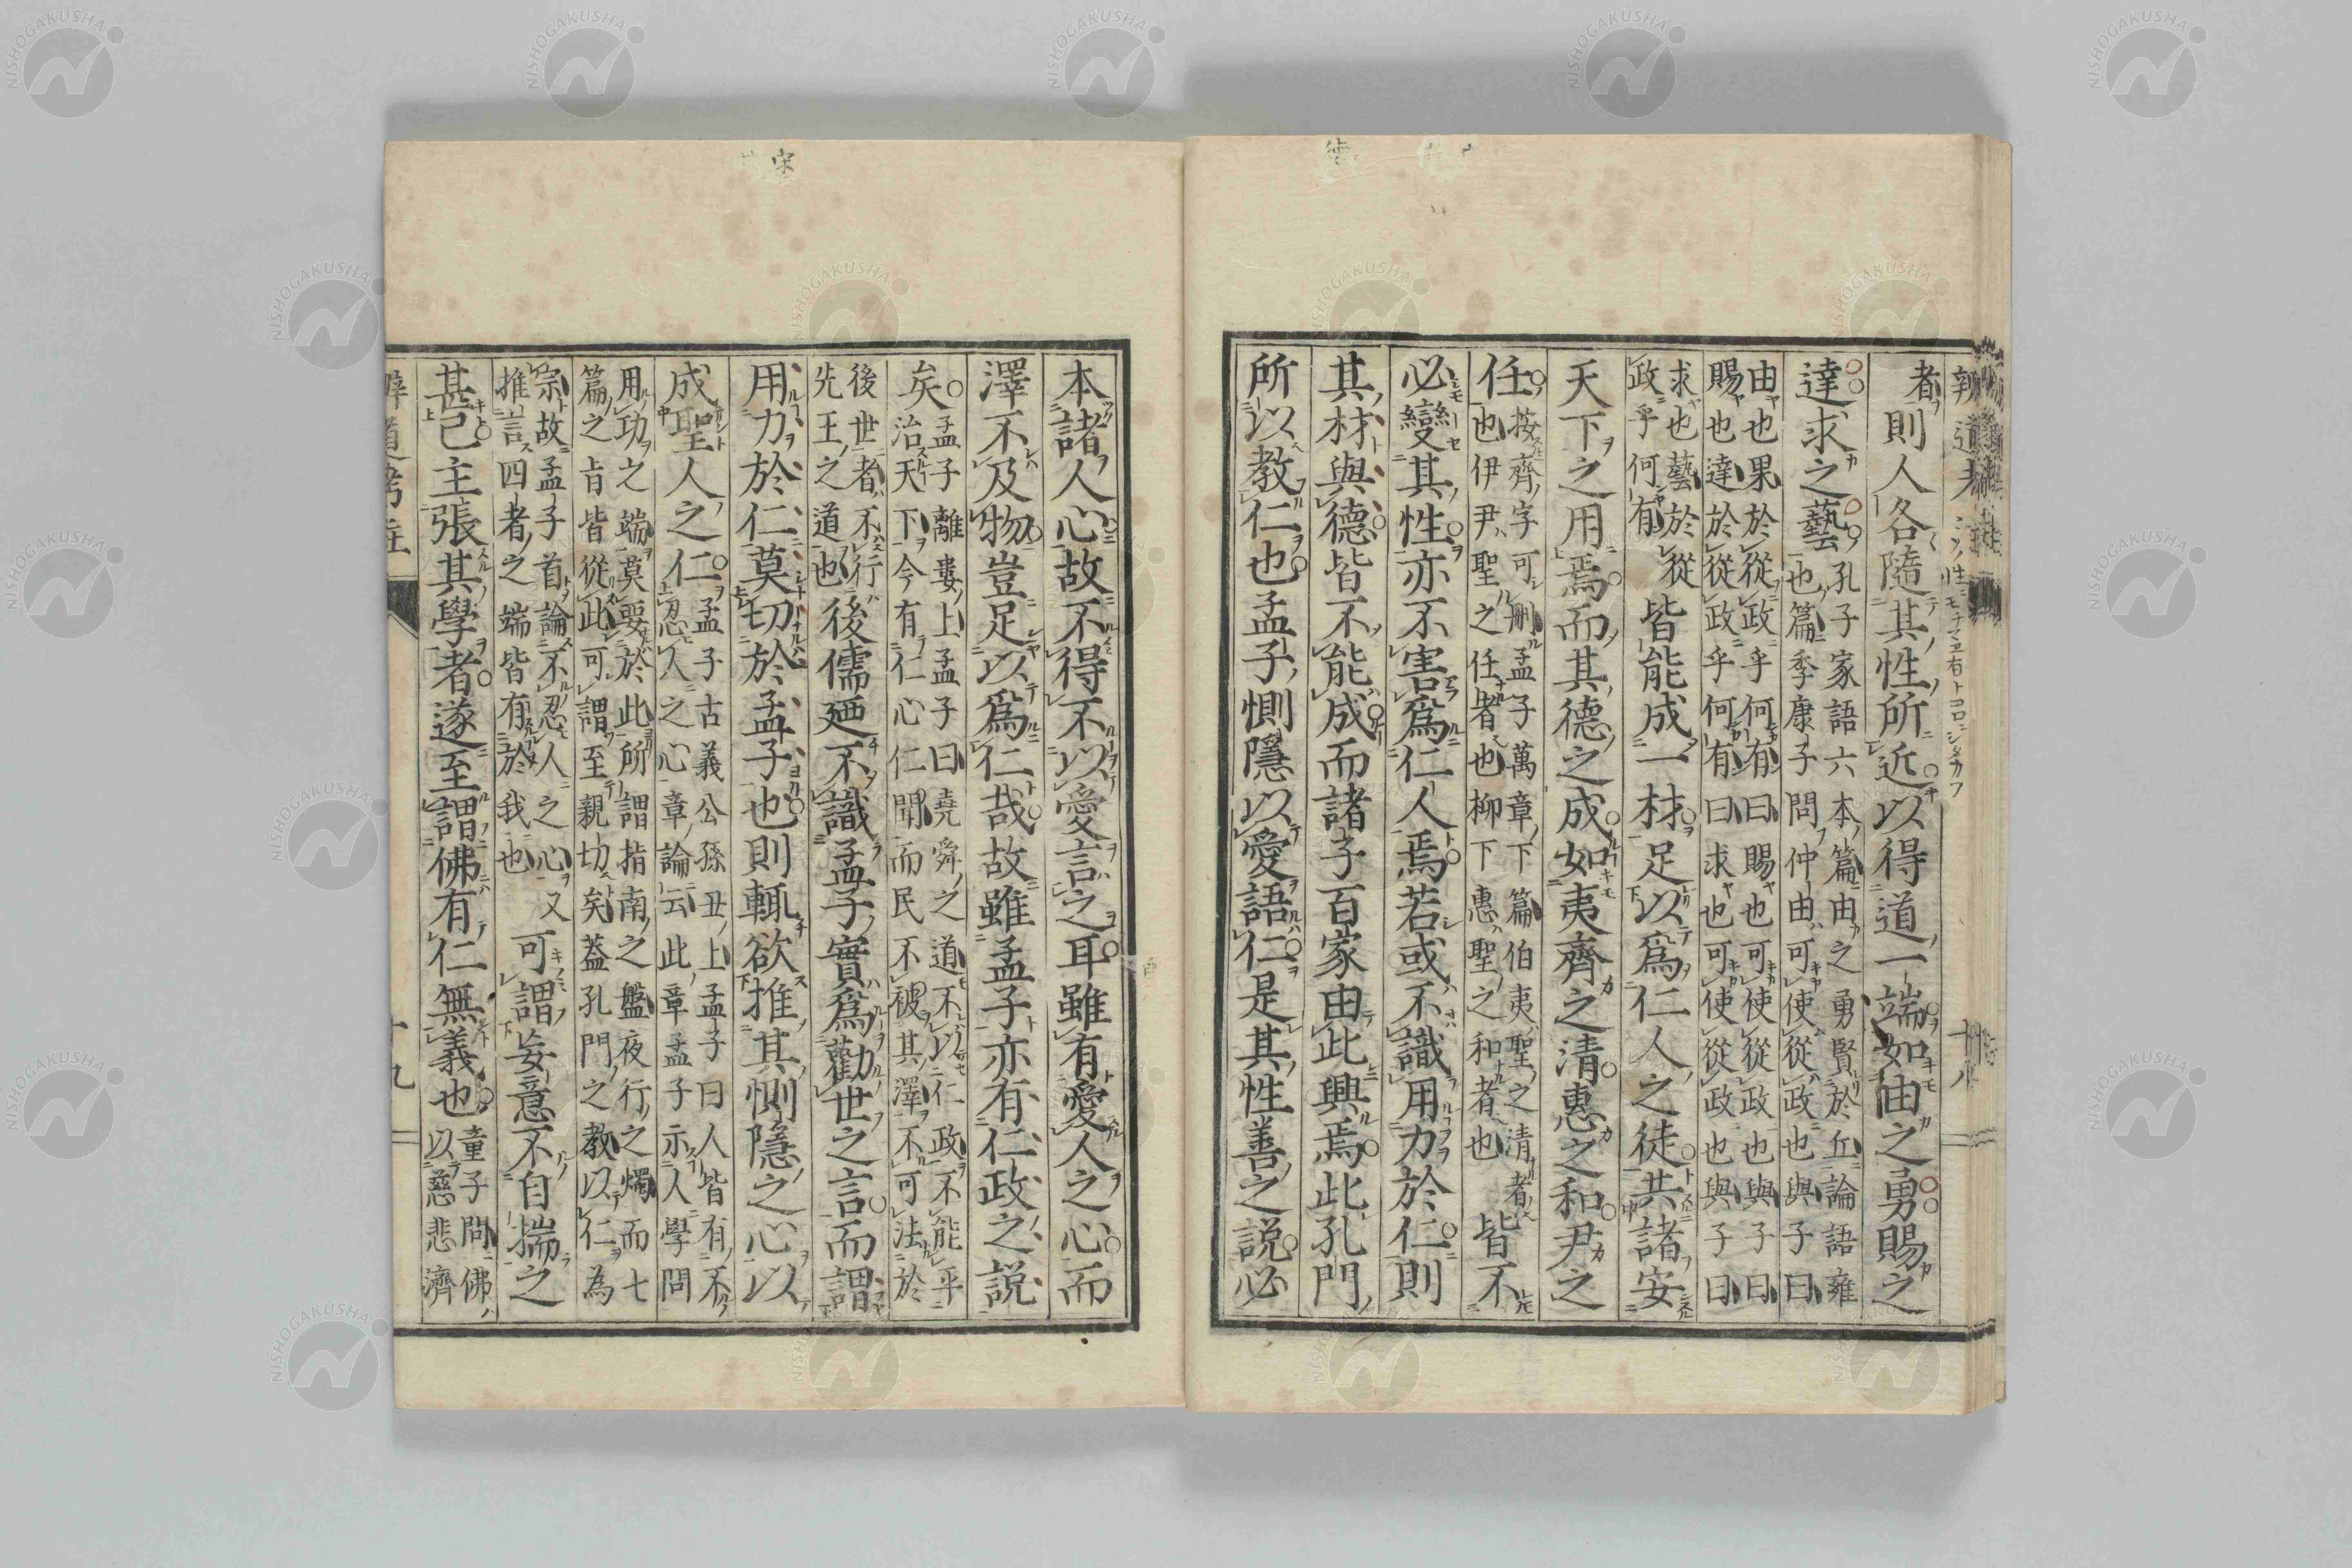 者則人各隨其性所近以得道一端如由之勇賜之
達求之藝
孔子家語六本篇由之勇賢於丘論語雍
也篇季康子問仲由可使從政也與子曰
由也果於從政乎何有曰賜也可使從政也與子曰
賜也達於從政乎何有曰求也可使從政也與子曰
求也藝於從
政乎何有
皆能成一材足以爲仁人之徒共諸安
天下之用焉而其德之成如夷齊之清惠之和尹之
任
按齊字可刪孟子萬章下篇伯夷聖之清者
也伊尹聖之任者也柳下惠聖之和者也
皆不
必變其性亦不害爲仁人焉若或不識用力於仁則
其材與德皆不能成而諸子百家由此興焉此孔門
所以教仁也孟子惻隱以愛語仁是其性善之説必
本諸人心故不得不以愛言之耳雖有愛人之心而
澤不及物豈足以爲仁哉故雖孟子亦有仁政之説
矣
孟子離婁上孟子曰堯舜之道不以仁政不能平
治天下今有仁心仁聞而民不被其澤不可法於
後世者不行
先王之道也
後儒廼不識孟子實爲勸世之言而謂
用力於仁莫切於孟子也則輒欲推其惻隱之心以
成聖人之仁
孟子古義公孫丑上孟子曰人皆有不
忍人之心章論云此章孟子示人學問
用功之端莫要於此所謂指南之盤夜行之燭而七
篇之旨皆從此可謂至親切矣蓋孔門之教以仁為
宗故孟子首論不忍人之心又
推言四者之端皆有於我也
可謂妄意不自揣之
甚已主張其學者遂至謂佛有仁無義也
童子問佛
以慈悲濟
辨道考註
十九
NISHOGAKUSHA